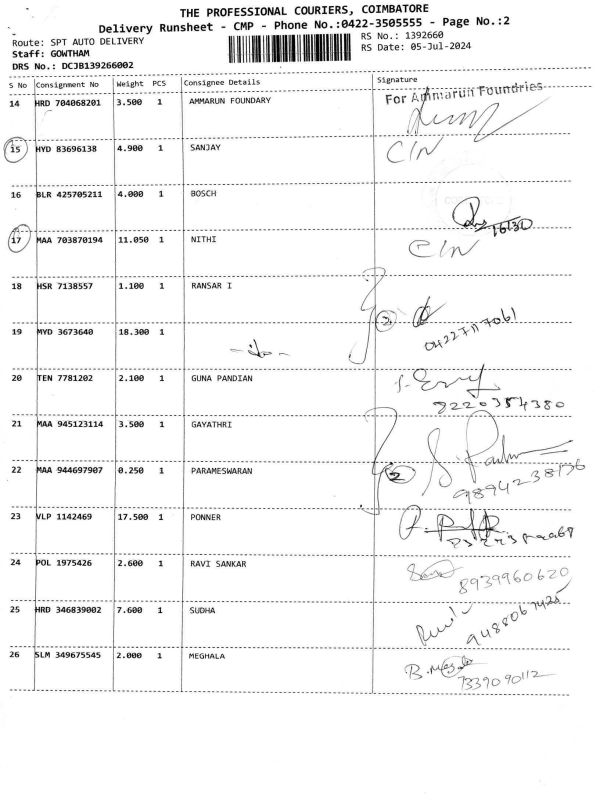 THE PROFESSIONAL COURIERS, COIMBATORE
Delivery Runsheet - CMP - Phone No.:0422-3505555 - Page No.:2
Route: SPT AUTO DELIVERY
RS No.: 1392660
Staff: GOWTHAM
RS Date: 05-Jul-2024
DRS No.: DCJB139266002
S No Consignment No Weight PCS Consignee Details Signature
14 HRD 704068201 3.500 1 AMMARUN FOUNDARY For Ammarun Foundries
15 HYD 83696138 4.900 1 SANJAY C/N
16 BLR 425705211 4.000 1 BOSCH
16130
17 MAA 703870194 11.050 1 NITHI C/N
18 HSR 7138557 1.100 1 RANSAR I
2
04227117061
19 MYD 3673640 18.300 1
20 TEN 7781202 2.100 1 GUNA PANDIAN
9220354380
21 MAA 945123114 3.500 1 GAYATHRI
22 MAA 944697907 0.250 1 PARAMESWARAN 2
9894238136
23 VLP 1142469 17.500 1 PONNER
24 POL 1975426 2.600 1 RAVI SANKAR
8939960620
25 HRD 346839002 7.600 1 SUDHA
26 SLM 349675545 2.000 1 MEGHALA
7339090112